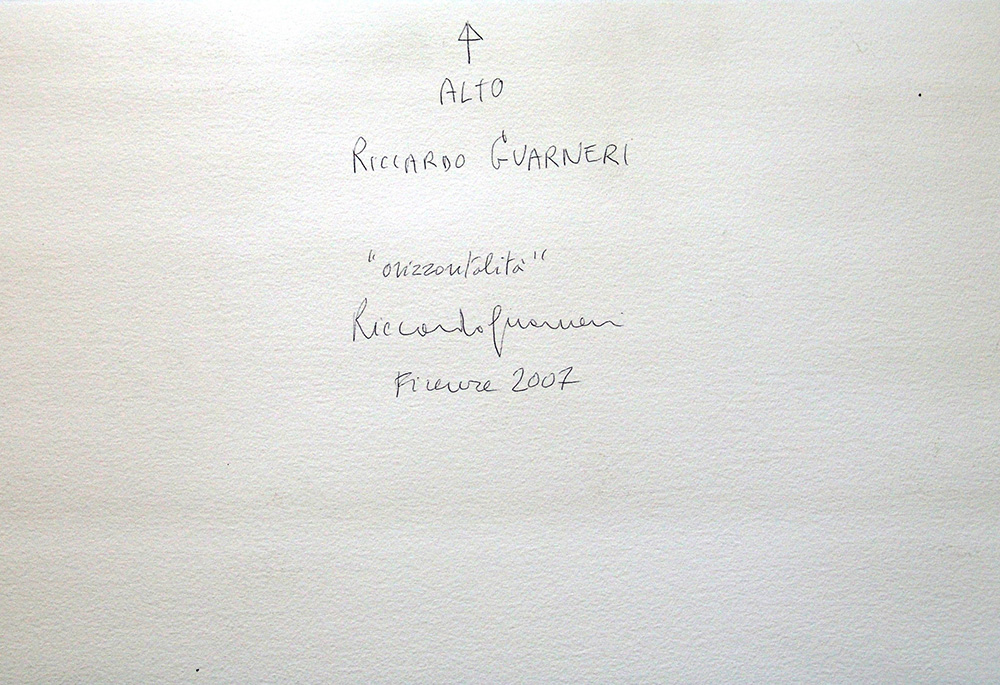 ALTO
RICCARDO GUARNERI
"orizzontalità"
Riccardo Guarneri
Firenze 2007